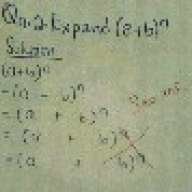 Qn.2 Expand (a+b)^n
Solution
(a+b)^n
=(a + b)^n
=(a + b)^n
=(a + b)^n
=(a + b)^n